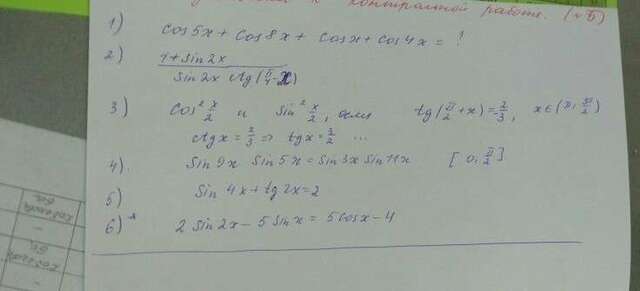 к контрольной работе. (№6)
1) cos5x + cos8x + cosx + cos4x = ?
2) 1+sin2x
sin2x ctg(π/4-x)
3) cos² x/2 и sin² x/2, если tg(π/2+x) = -2/3, x∈(π; 3π/2)
ctgx = 2/3 ⇒ tgx = 3/2 ...
4). sin9x sin5x = sin3x sin11x [0; π/2]
5) sin4x + tg2x = 2
6)* 2 sin2x - 5 sinx = 5cosx - 4